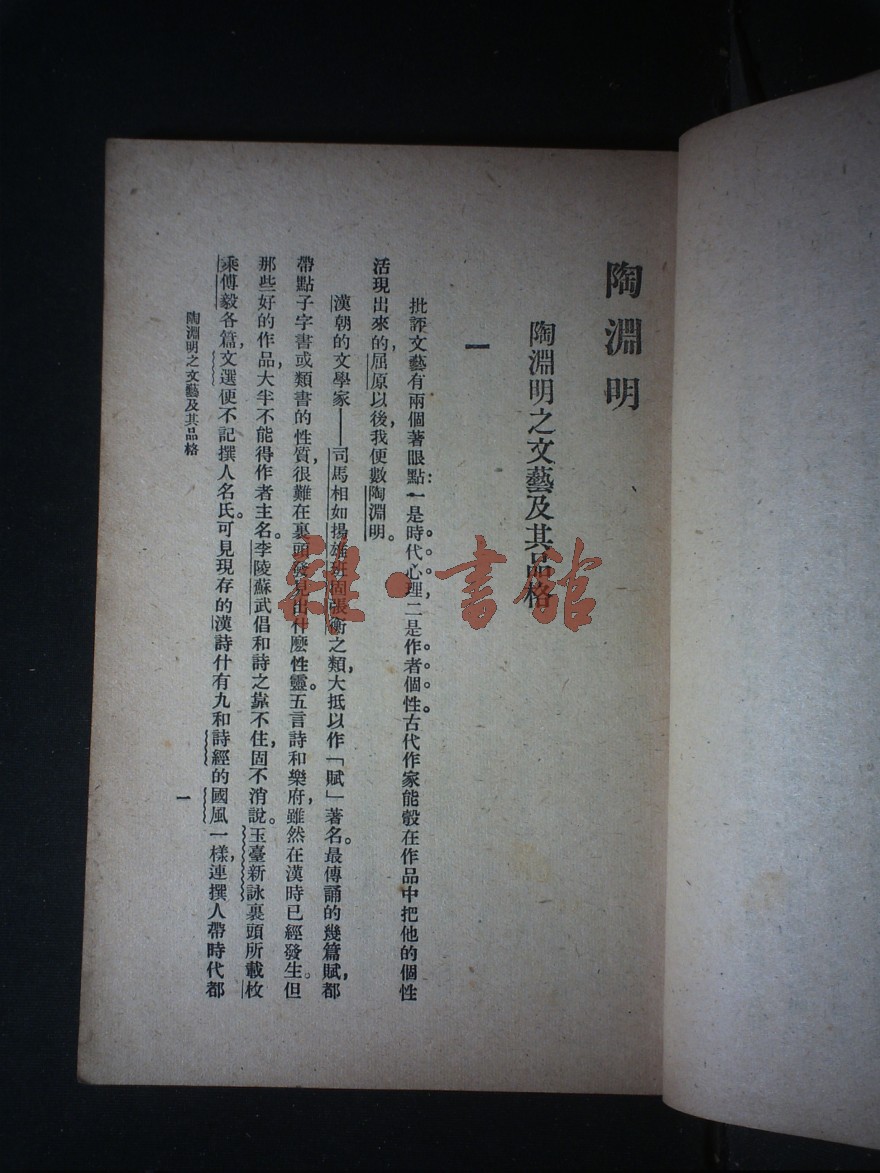 陶淵明
陶淵明之文藝及其品格
一
批評文藝有兩個著眼點：一是時代心理，二是作者個性。古代作家能彀在作品中把他的個性
活現出來的，屈原以後，我便數陶淵明。
漢朝的文學家——司馬相如揚雄班固張衡之類，大抵以作「賦」著名。最傳誦的幾篇賦，都
帶點子字書或類書的性質，很難在裏頭發見出什麽性靈。五言詩和樂府，雖然在漢時已經發生。但
那些好的作品，大半不能得作者主名。李陵蘇武倡和詩之靠不住，固不消說。玉臺新詠裏頭所載枚
乘傅毅各篇，文選便不記撰人名氏。可見現存的漢詩什有九和詩經的國風一樣，連撰人帶時代都
陶淵明之文藝及其品格
一
雜·書館